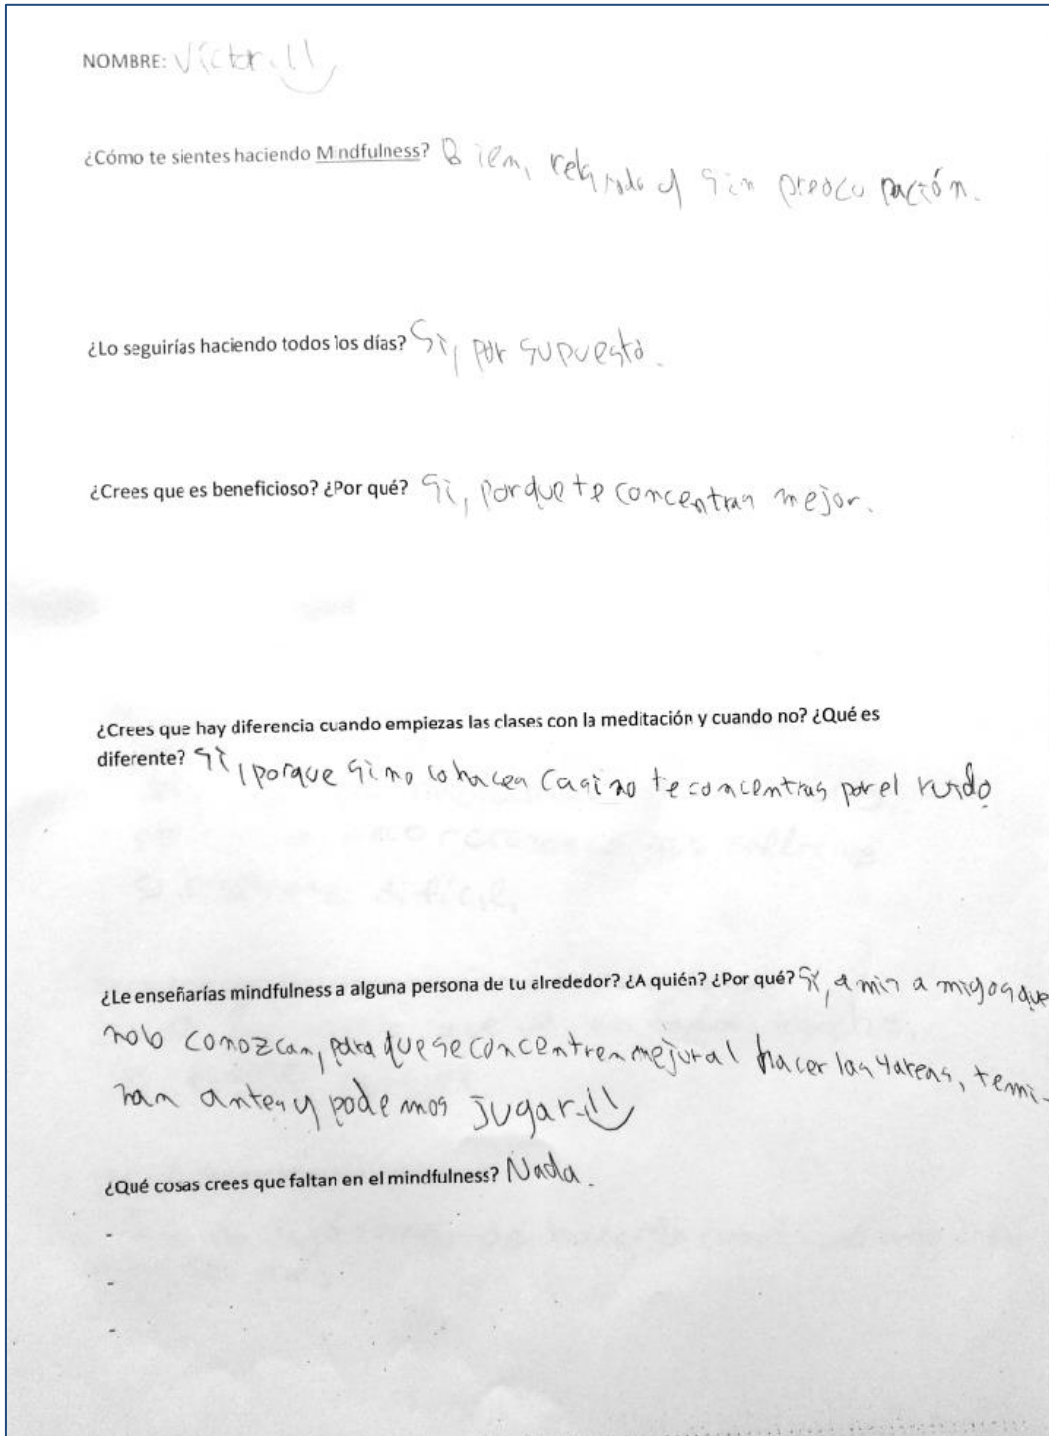 NOMBRE: Víctor. !!
¿Cómo te sientes haciendo Mindfulness? Bien, relajado y sin preocupación.
¿Lo seguirías haciendo todos los días? Sí, por supuesto.
¿Crees que es beneficioso? ¿Por qué? Sí, porque te concentras mejor.
¿Crees que hay diferencia cuando empiezas las clases con la meditación y cuando no? ¿Qué es
diferente? Sí, porque si no lo hacen casi no te concentras por el ruido.
¿Le enseñarías mindfulness a alguna persona de tu alrededor? ¿A quién? ¿Por qué? Sí, a mis amigos que
no lo conozcan, para que se concentren mejor al hacer las tareas, temi-
nan antes y podemos jugar.
¿Qué cosas crees que faltan en el mindfulness? Nada.
-
-
-